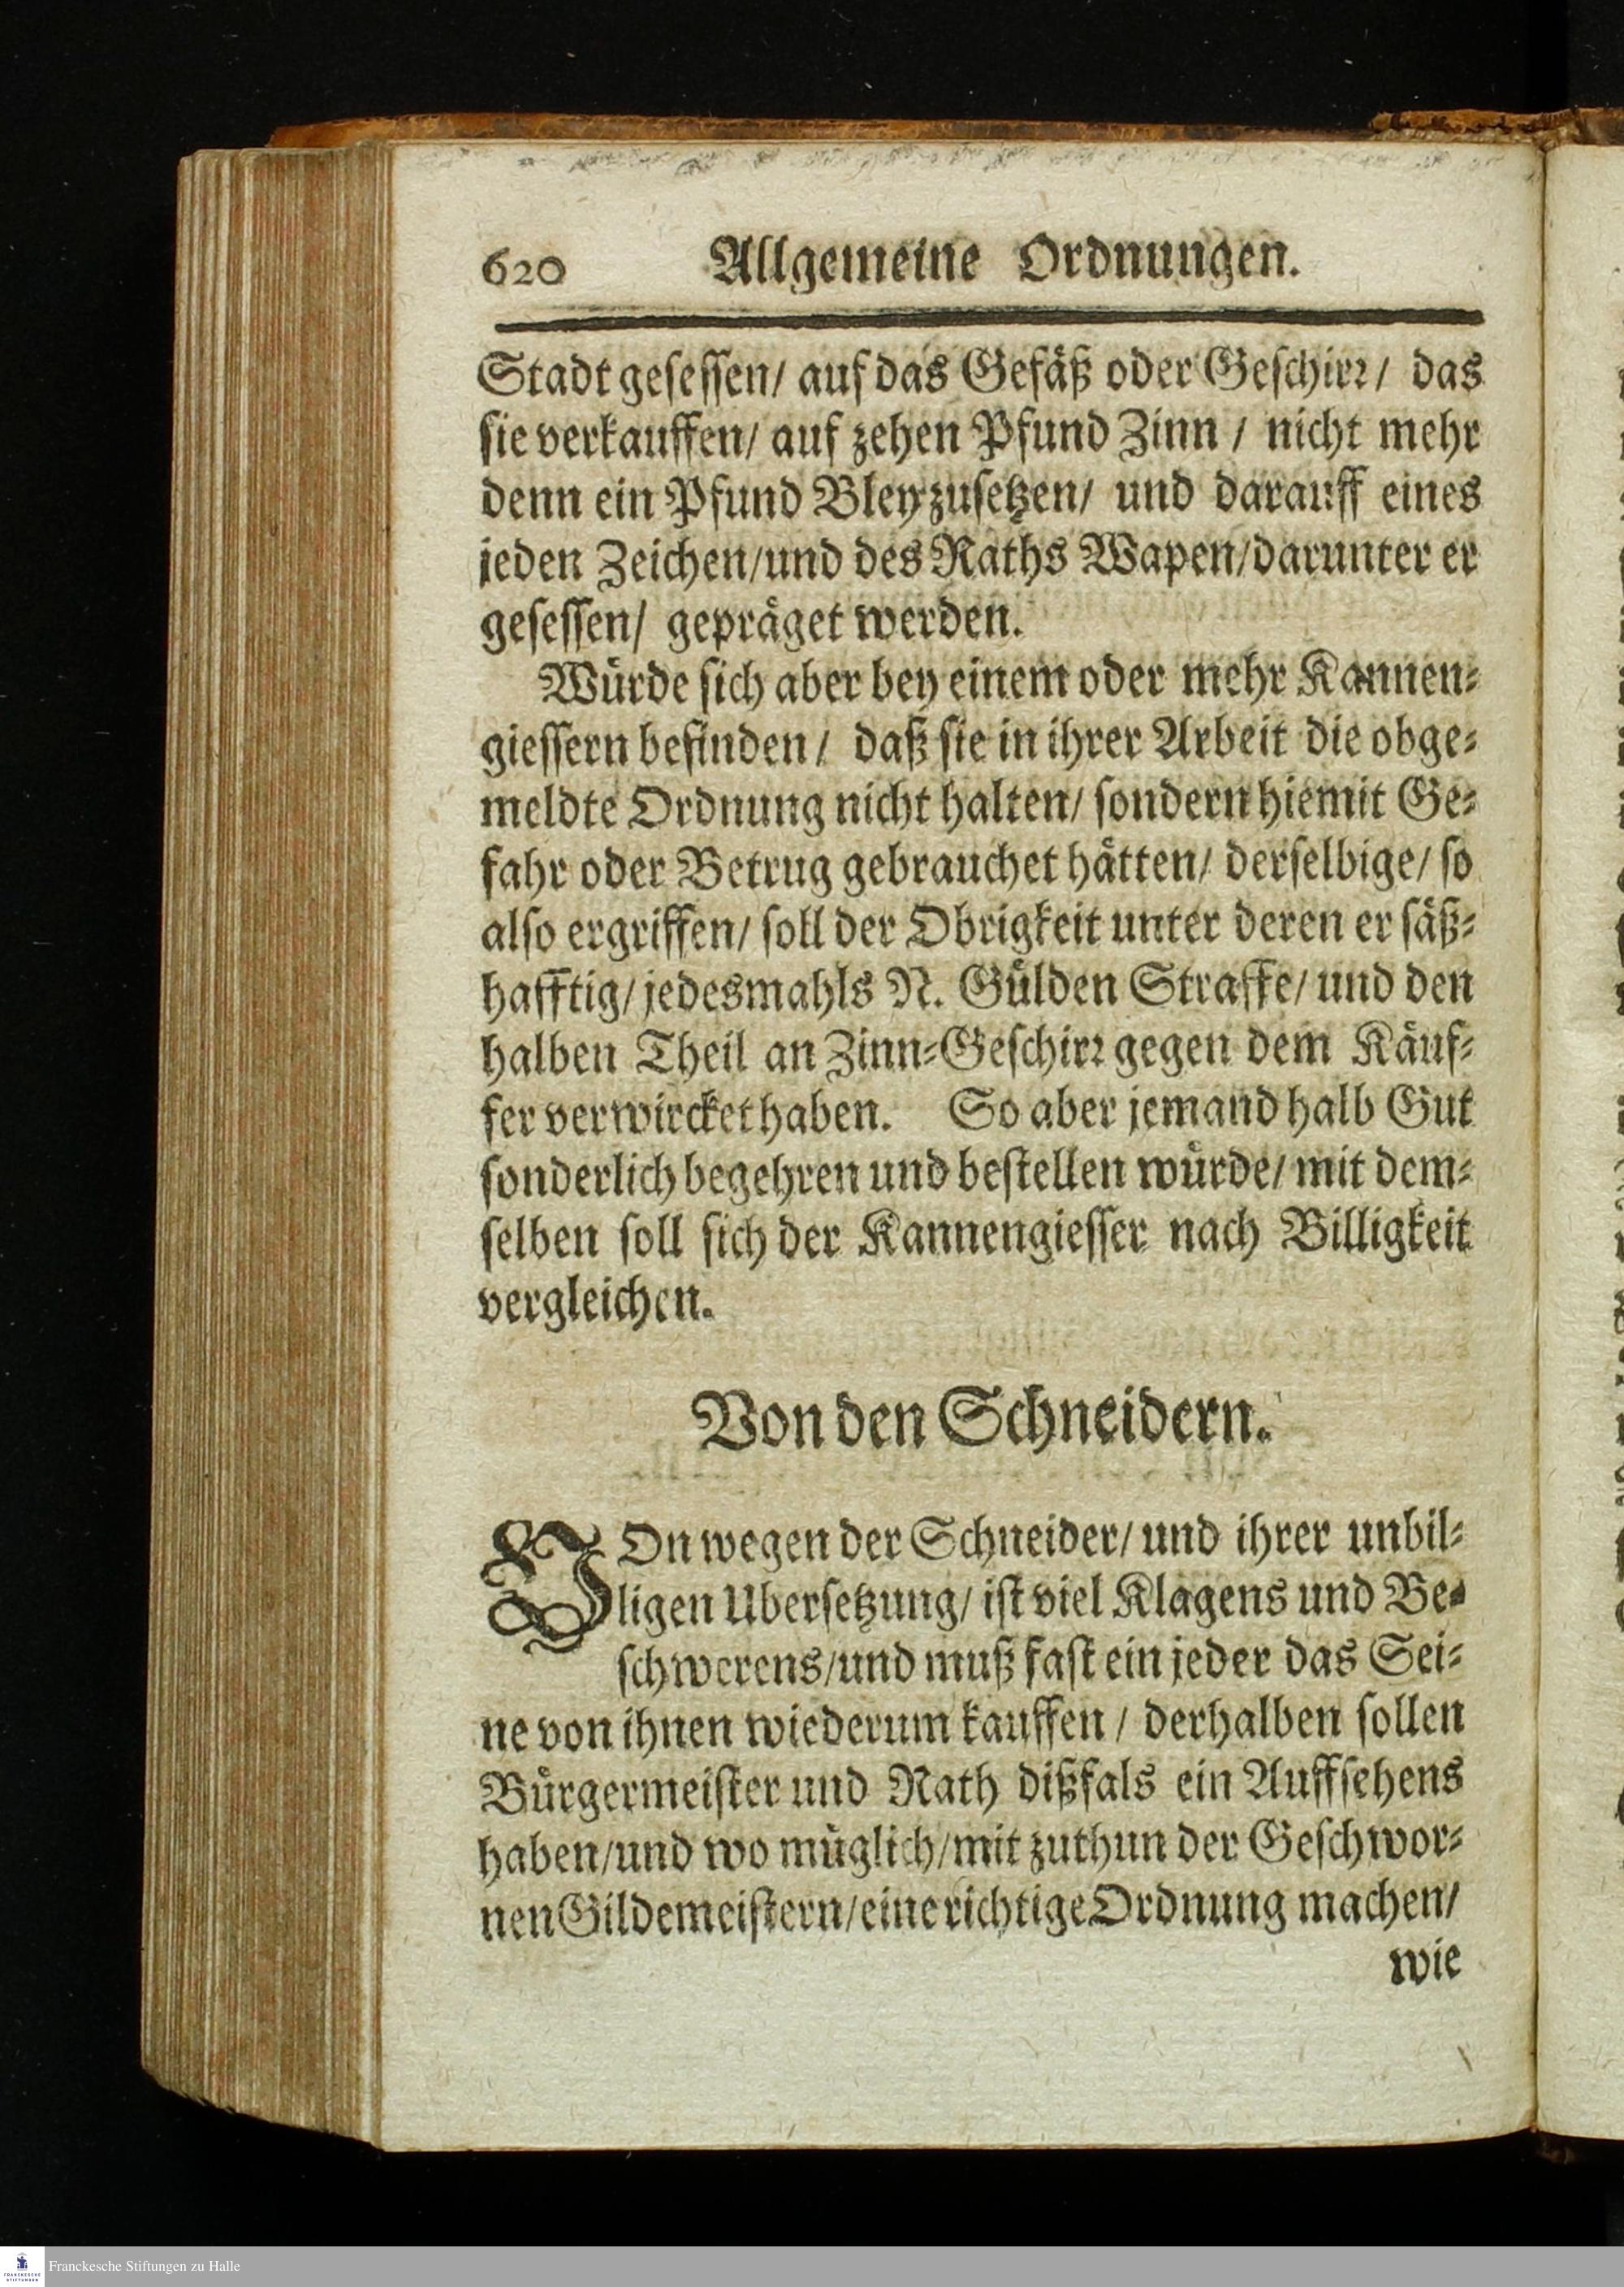 620 Allgemeine Ordnungen.
Stadt geſeſſen/ auf das Gefäß oder Geſchirꝛ/ das
ſie verkauffen/ auf zehen Pfund Zinn / nicht mehr
denn ein Pfund Bley zuſetzen/ und darauff eines
jeden Zeichen/und des Raths Wapen/darunter er
geſeſſen/ gepräget werden.
Würde ſich aber bey einem oder mehr Kannen⸗
gieſſern befinden / daß ſie in ihrer Arbeit die obge⸗
meldte Ordnung nicht halten/ ſondern hiemit Ge⸗
fahr oder Betrug gebrauchet hätten/ derſelbige/ ſo
alſo ergriffen/ ſoll der Obrigkeit unter deren er ſäß⸗
hafftig/ jedesmahls N. Gülden Straffe/ und den
halben Theil an Zinn⸗Geſchirꝛ gegen dem Käuf⸗
fer verwircket haben. So aber jemand halb Gut
ſonderlich begehren und beſtellen würde/ mit dem⸗
ſelben ſoll ſich der Kannengieſſer nach Billigkeit
vergleichen.
Von den Schneidern.
VOn wegen der Schneider/ und ihrer unbil⸗
ligen Uberſetzung/ iſt viel Klagens und Be⸗
ſchwerens/und muß faſt ein jeder das Sei⸗
ne von ihnen wiederum kauffen / derhalben ſollen
Bürgermeiſter und Rath dißfals ein Auffſehens
haben/und wo müglich/mit zuthun der Geſchwor⸗
nen Gildemeiſtern/eine richtige Ordnung machen/
wie
Franckesche Stiftungen zu Halle
FRANCKESCHE
STIFTUNGEN